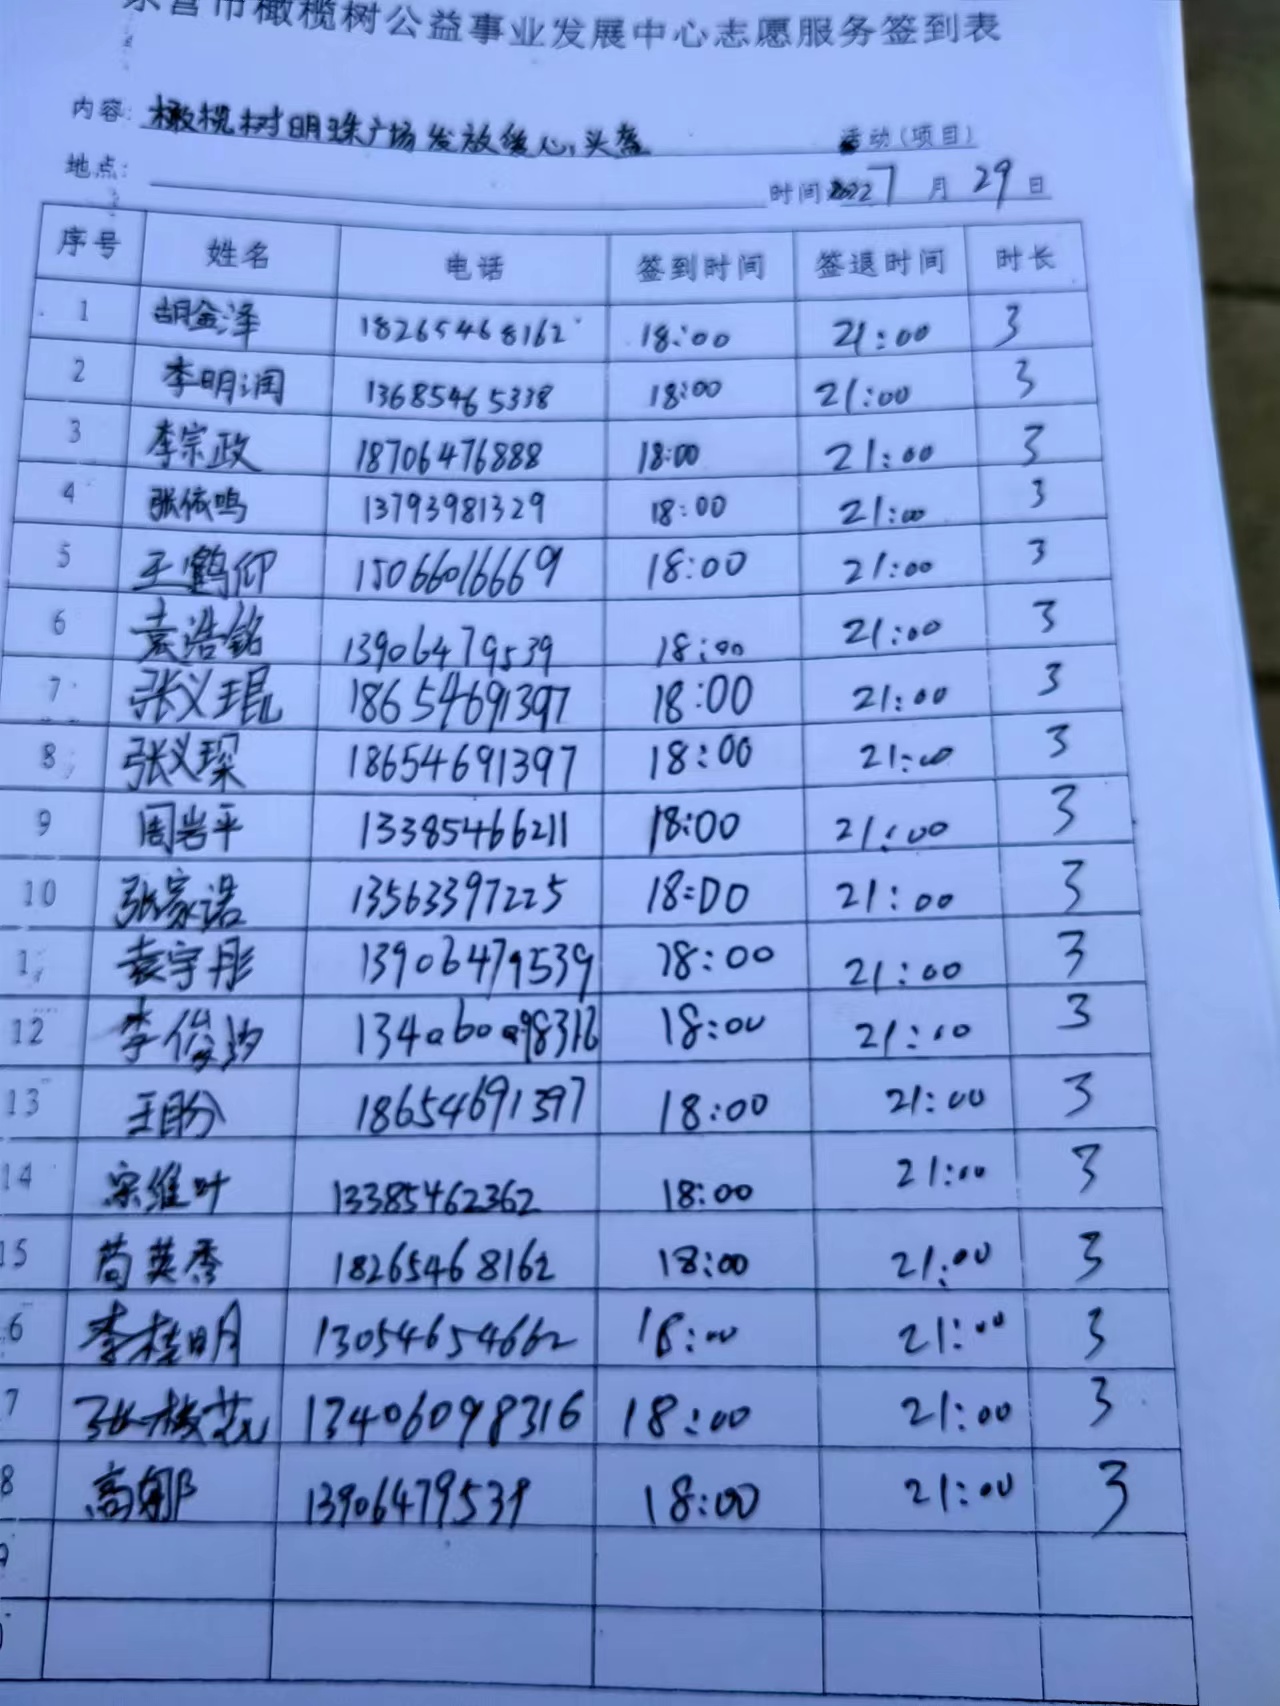 东营市橄榄树公益事业发展中心志愿服务签到表
内容: 橄榄树明珠广场发放暖心头盔 活动(项目)
地点: 时间:2022 7 月 29 日
序号 姓名 电话 签到时间 签退时间 时长
1 胡金泽 18265468162 18:00 21:00 3
2 李明润 13685465338 18:00 21:00 3
3 李宗政 18706476888 18:00 21:00 3
4 张依鸣 13793981329 18:00 21:00 3
5 王鹤仰 15066016669 18:00 21:00 3
6 袁浩铭 13906479539 18:00 21:00 3
7 张义琨 18654691397 18:00 21:00 3
8 张义琛 18654691397 18:00 21:00 3
9 周岩平 13385466211 18:00 21:00 3
10 张家诺 13563397225 18:00 21:00 3
1 袁宇彤 13906479539 18:00 21:00 3
12 李俊汐 13406098316 18:00 21:00 3
13 王盼 18654691397 18:00 21:00 3
14 宗维叶 13385462362 18:00 21:00 3
15 苟英秀 18265468162 18:00 21:00 3
6 李桂明 13054654662 18:00 21:00 3
7 13406098316 18:00 21:00 3
8 高娜 13906479539 18:00 21:00 3
9
0